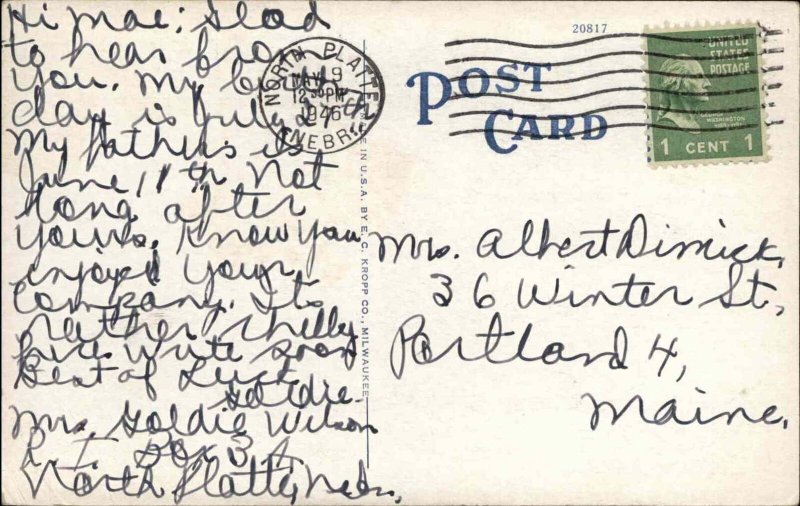 Hi Mae; Glad
to hear from
you. My birth
day is July 27th
My fathers is
June 11th Not
long after
yours. Know you
enjoyed your
company. Its
rather chilly
here write soon
Best of Luck
Goldie
Mrs. Goldie Wilson
R I Box 3 A
North Platte, Nebr.
NORTH PLATTE
MAY 9
12 30 PM
1946
NEBR.
MADE IN U.S.A. BY E. C. KROPP CO., MILWAUKEE
20817
POST
CARD
UNITED
STATES
POSTAGE
GEORGE
WASHINGTON
1789-1797
1 CENT 1
Mrs. Albert Dimick,
36 Winter St,
Portland 4,
Maine.